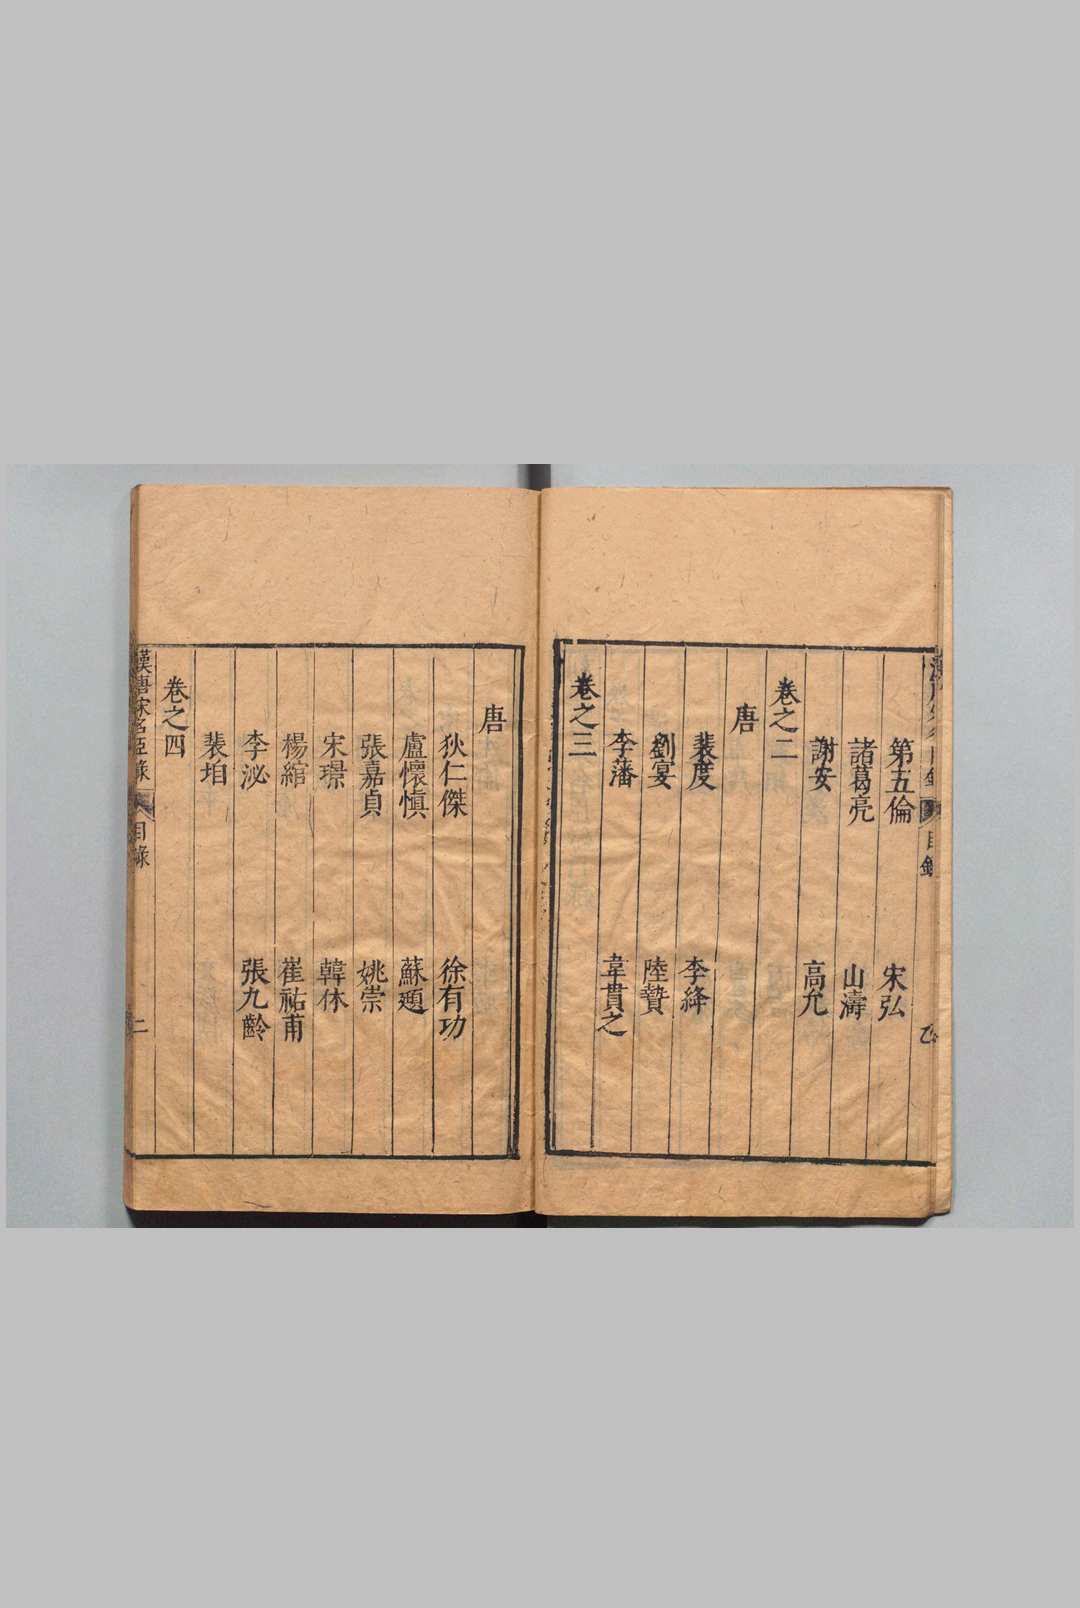 第五倫 宋弘
諸葛亮 山濤
謝安 高允
卷之二
唐
裴度 李絳
劉宴 陸贄
李藩 韋貫之
卷之三
唐
狄仁傑 徐有功
盧懷慎 蘇頲
張嘉貞 姚崇
宋璟 韓休
楊綰 崔祐甫
李泌 張九齡
裴垍
卷之四
漢唐宋名臣錄 目錄 二